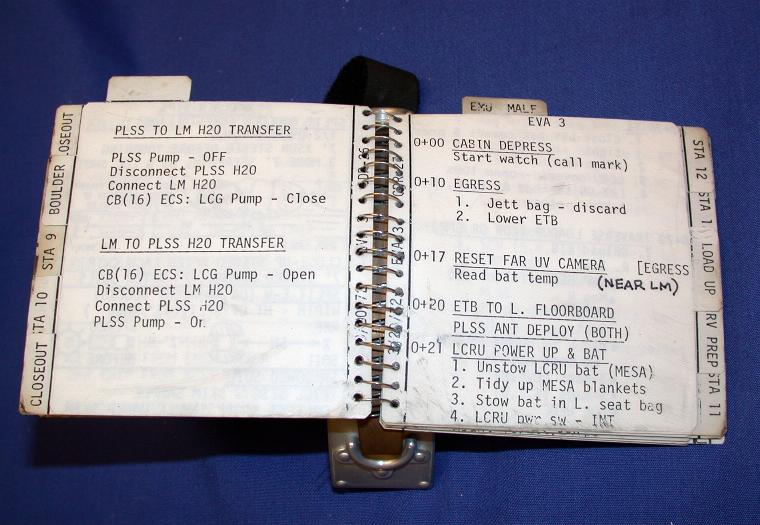 PLSS TO LM H2O TRANSFER
PLSS Pump - OFF
Disconnect PLSS H2O
Connect LM H2O
CB(16) ECS: LCG Pump - Close
LM TO PLSS H2O TRANSFER
CB(16) ECS: LCG Pump - Open
Disconnect LM H2O
Connect PLSS H2O
PLSS Pump - On
BOULDER
STA 9
CLOSEOUT
EMU MALF
EVA 3
0+00 CABIN DEPRESS
Start watch (call mark)
0+10 EGRESS
1. Jett bag - discard
2. Lower ETB
0+17 RESET FAR UV CAMERA [EGRESS
Read bat temp (NEAR LM)
0+20 ETB TO L. FLOORBOARD
PLSS ANT DEPLOY (BOTH)
0+21 LCRU POWER UP & BAT
1. Unstow LCRU bat (MESA)
2. Tidy up MESA blankets
3. Stow bat in L. seat bag
4. LCRU pwr sw - INT
STA 12
LOAD UP
RV PREP
STA 11